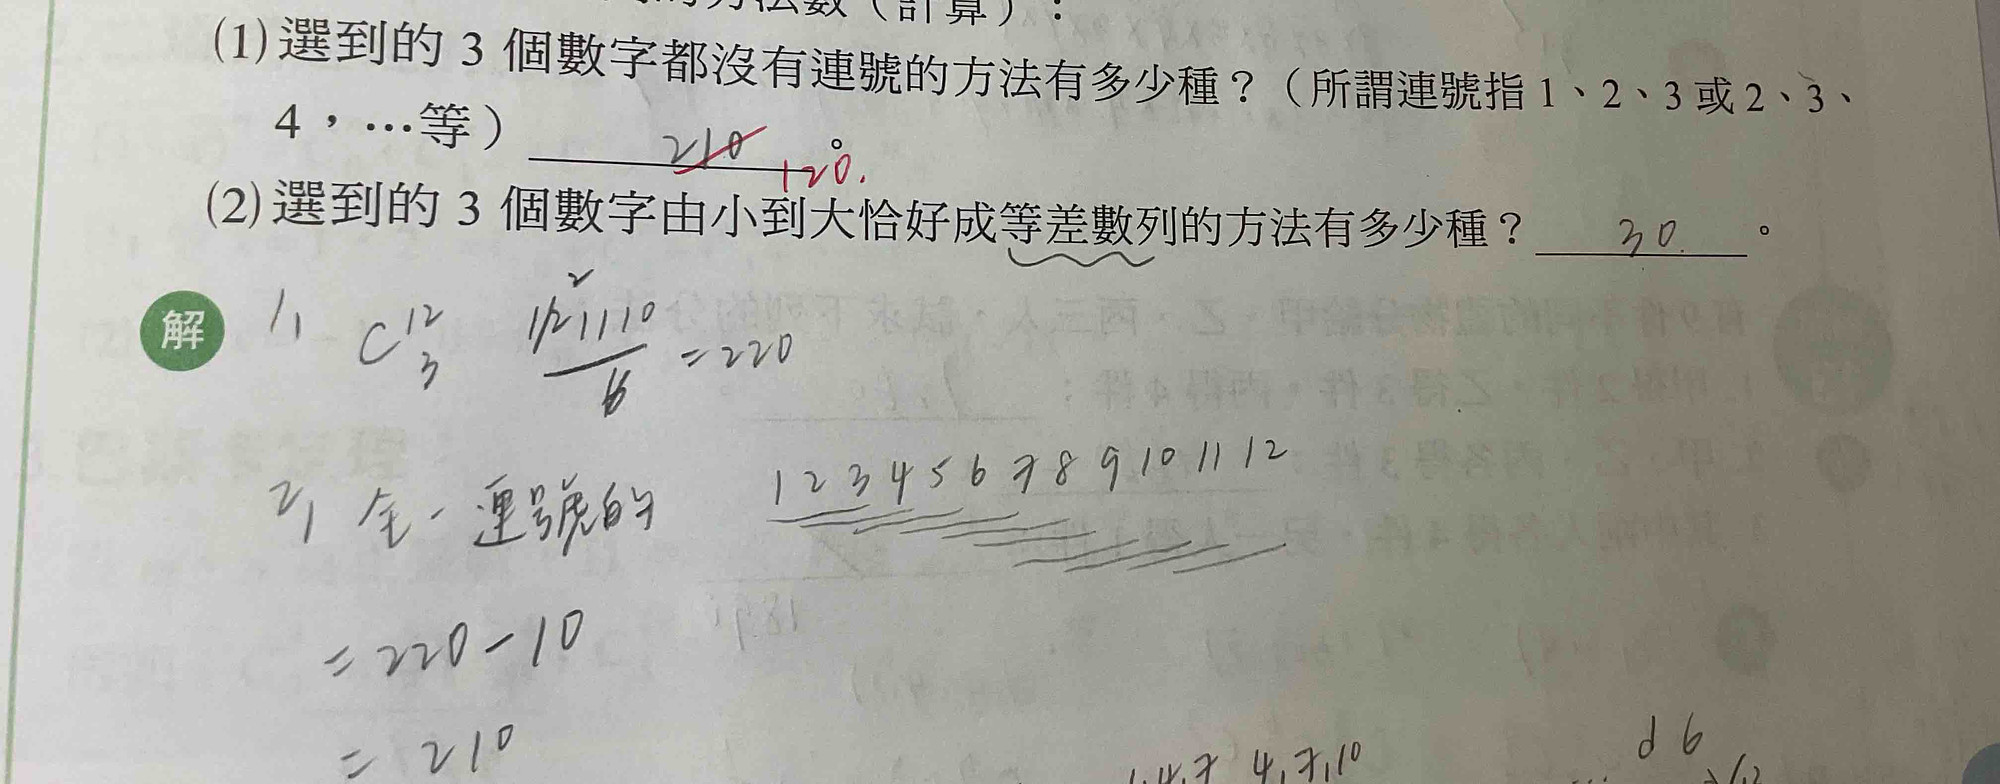 方法數（計算）：
(1)選到的 3 個數字都沒有連號的方法有多少種？（所謂連號指 1、2、3 或 2、3、
4，…等） 210 。
120.
(2)選到的 3 個數字由小到大恰好成等差數列的方法有多少種？ 30. 。
解 1, C 12 3 12 11 10 2 / 6 = 220
2, 全 - 連號的 1 2 3 4 5 6 7 8 9 10 11 12
= 220 - 10
= 210
1,4,7 4,7,10
d 6